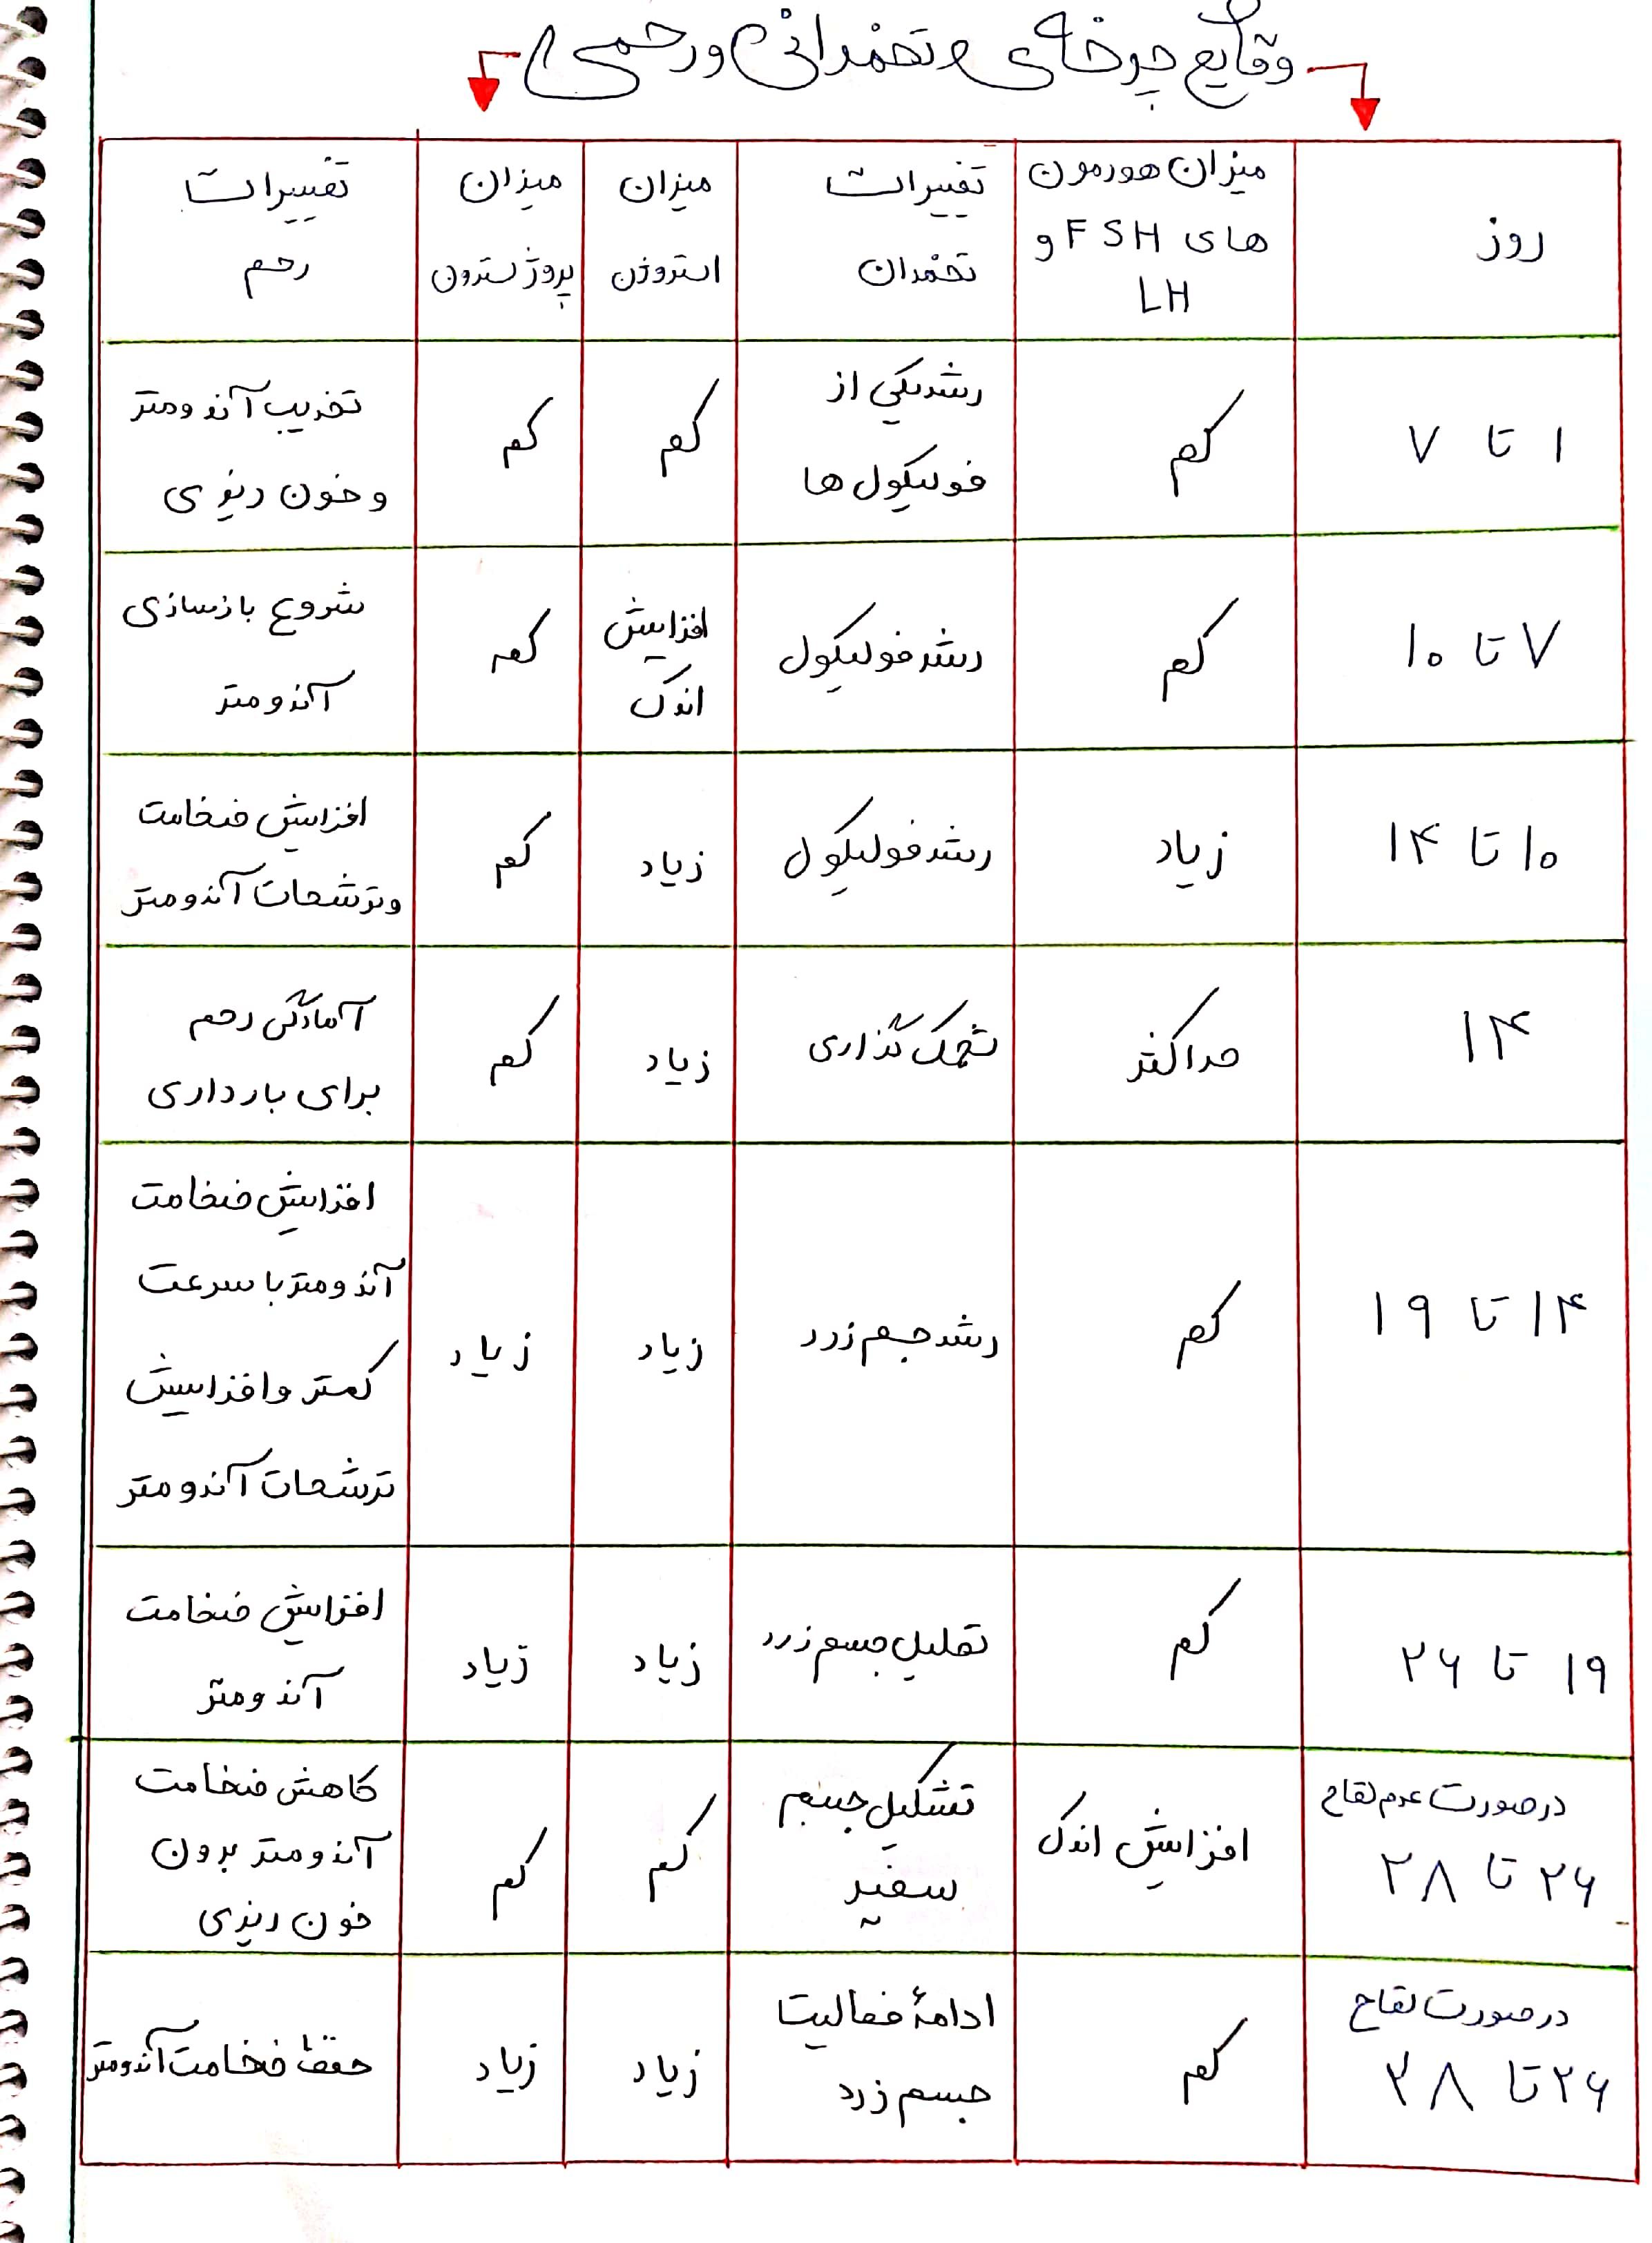 وقایع چرخه‌ی تخمدانی و رحمی
روز
میزان هورمون
های FSH و
LH
تغییرات
تخمدان
میزان
استروژن
میزان
پروژسترون
تغییرات
رحم
۱ تا ۷
کم
رشد یکی از
فولیکول ها
کم
کم
تخریب آندومتر
و خون ریزی
۷ تا ۱۰
کم
رشد فولیکول
افزایش
اندک
کم
شروع بازسازی
آندومتر
۱۰ تا ۱۴
زیاد
رشد فولیکول
زیاد
کم
افزایش ضخامت
و ترشحات آندومتر
۱۴
حداکثر
تخمک گذاری
زیاد
کم
آمادگی رحم
برای بارداری
۱۴ تا ۱۹
کم
رشد جسم زرد
زیاد
زیاد
افزایش ضخامت
آندومتر با سرعت
کمتر و افزایش
ترشحات آندومتر
۱۹ تا ۲۶
کم
تحلیل جسم زرد
زیاد
زیاد
افزایش ضخامت
آندومتر
در صورت عدم لقاح
۲۶ تا ۲۸
افزایش اندک
تشکیل جسم
سفید
کم
کم
کاهش ضخامت
آندومتر بدون
خون ریزی
در صورت لقاح
۲۶ تا ۲۸
کم
ادامهٔ فعالیت
جسم زرد
زیاد
زیاد
حفظ ضخامت آندومتر